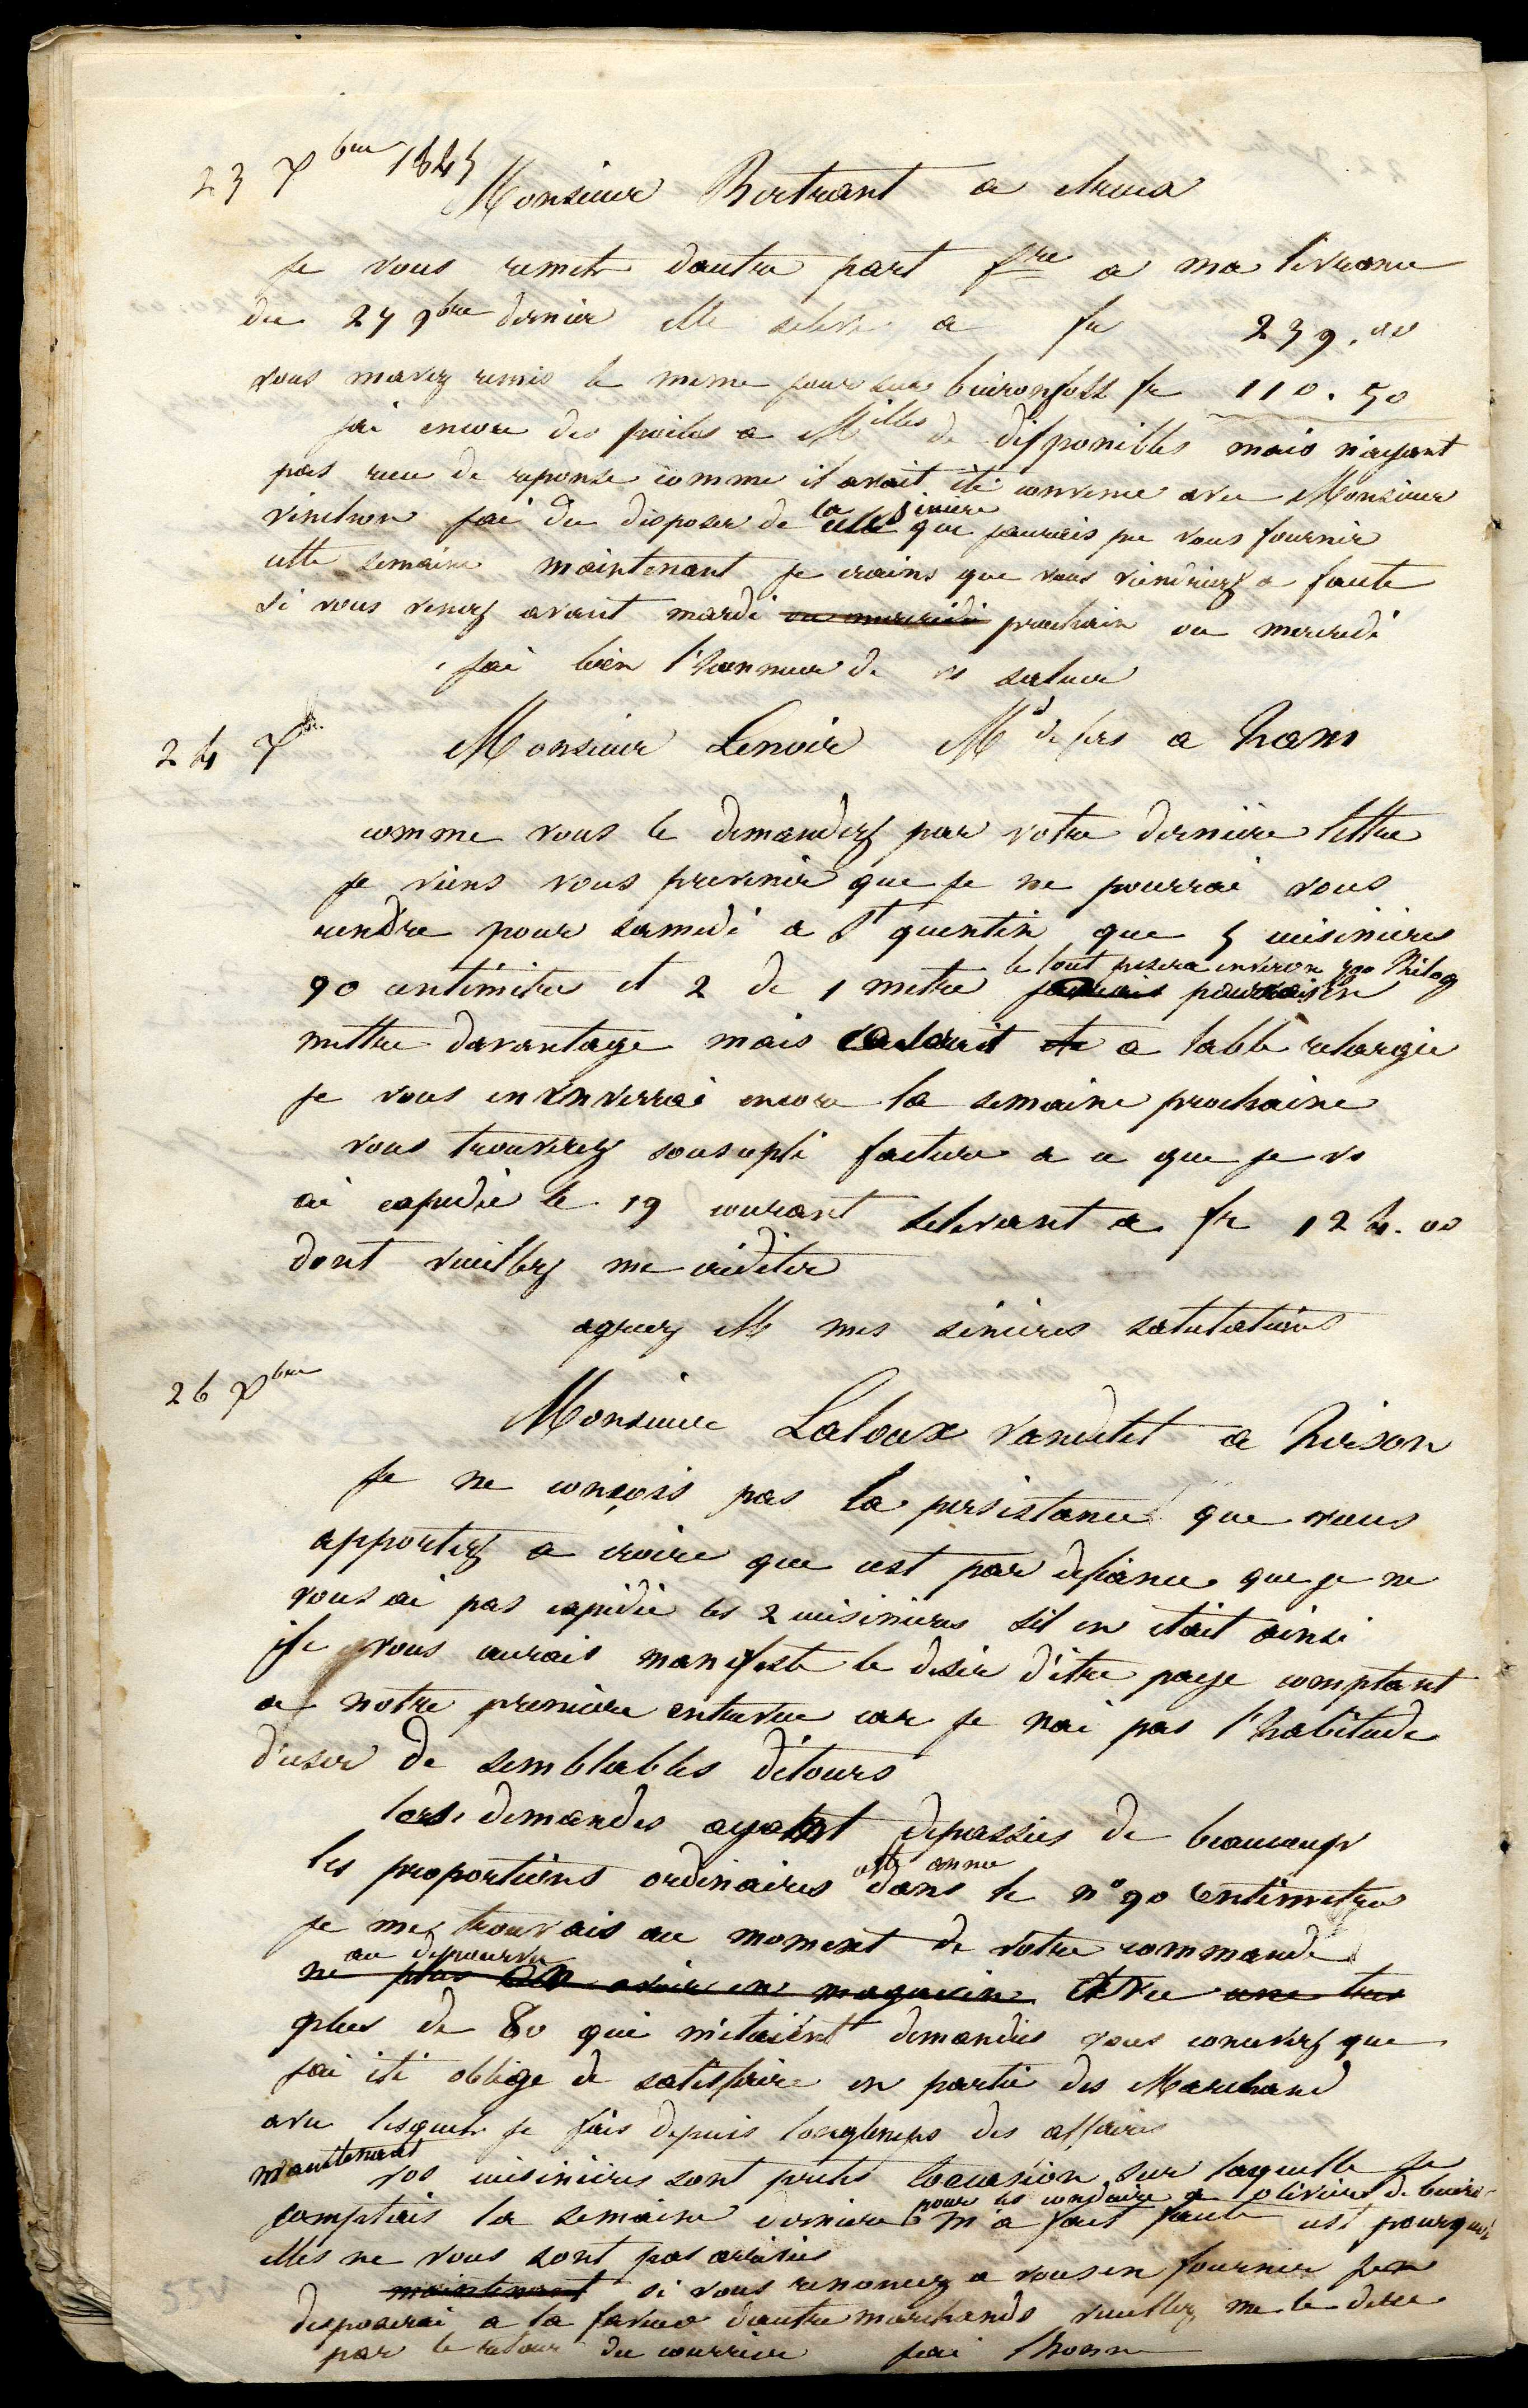 23 7bre 1845
Monsieur Bertrant a
Je vous remets dautre part fre a ma livrance
du 27 9bre dernier elle seleve a fr 239.00
vous mavez remis le meme jour sur buironfosse fr 110.50
jai encore des poiles a Milles de disponibles mais n'ayant
pas recu de reponse comme il avait été convenu avec Monsieur
jai du disposer de la cuisiniere que jaurais pu vous fournir
cette semaine maintenant je crains que vous viendriez a faute
si vous venez avant mardi ou mercredi prochain ou mercredi
jai bien l'honneur de vs saluer
24 7bre
Monsieur Lenoir Md de fers a ham
comme vous le demandez par votre derniere lettre
je viens vous prevenir que je ne pourrai vous
rendre pour samedi a St quentin que 5 cuisinieres
le tout pesera environ 500 Kilog
90 centimetre et 2 de 1 metre jaurais pourrais en
mettre davantage mais ca serait a table rechargée
je vous en enverrai encore la semaine prochaine
vous trouverez sousce pli facture a ce que je vs
ai expedié le 19 courant selevant a fr 124.00
dont veuillez me créditer
agreez M mes sinceres salutations
26 7bre
Monsieur Laloux vandelet a hirson
Je ne conçois pas la persistance que vous
apportez a croire que cest par defiance que je ne
vous ai pas expédié les 2 cuisinieres sil en était ainsi
je vous aurais manifesté le desir d'être paye comptant
a notre premiere entrevue car je nai pas l'habitude
d'user de semblables détours
les demandes ayant depassées de beaucoup
cette annee
les proportions ordinaires dans le n° 90 Centimetre
je me trouvais au moment de votre commande
au depourvu
ne plus en avoir en magasin et vu une
plus de 80 qui m'etaient demandés vous concevez que
jai été obligé de satisfaire en partie des Marchand
avec lesquels je fais depuis longtemps des affaires
maintenant
vos cuisinieres sont pretes locasion sur laquelle je
pour les conduire a olivier de buiro-
comptais la semaine derniere m'a fait faute cest pourquoi
elles ne vous sont pas arrivées
maintenant si vous renoncez a vous en fournir jen
disposerai a la faveur dautre marchands veuillez me le dire
par le retour du courrier jai lhonn
55v